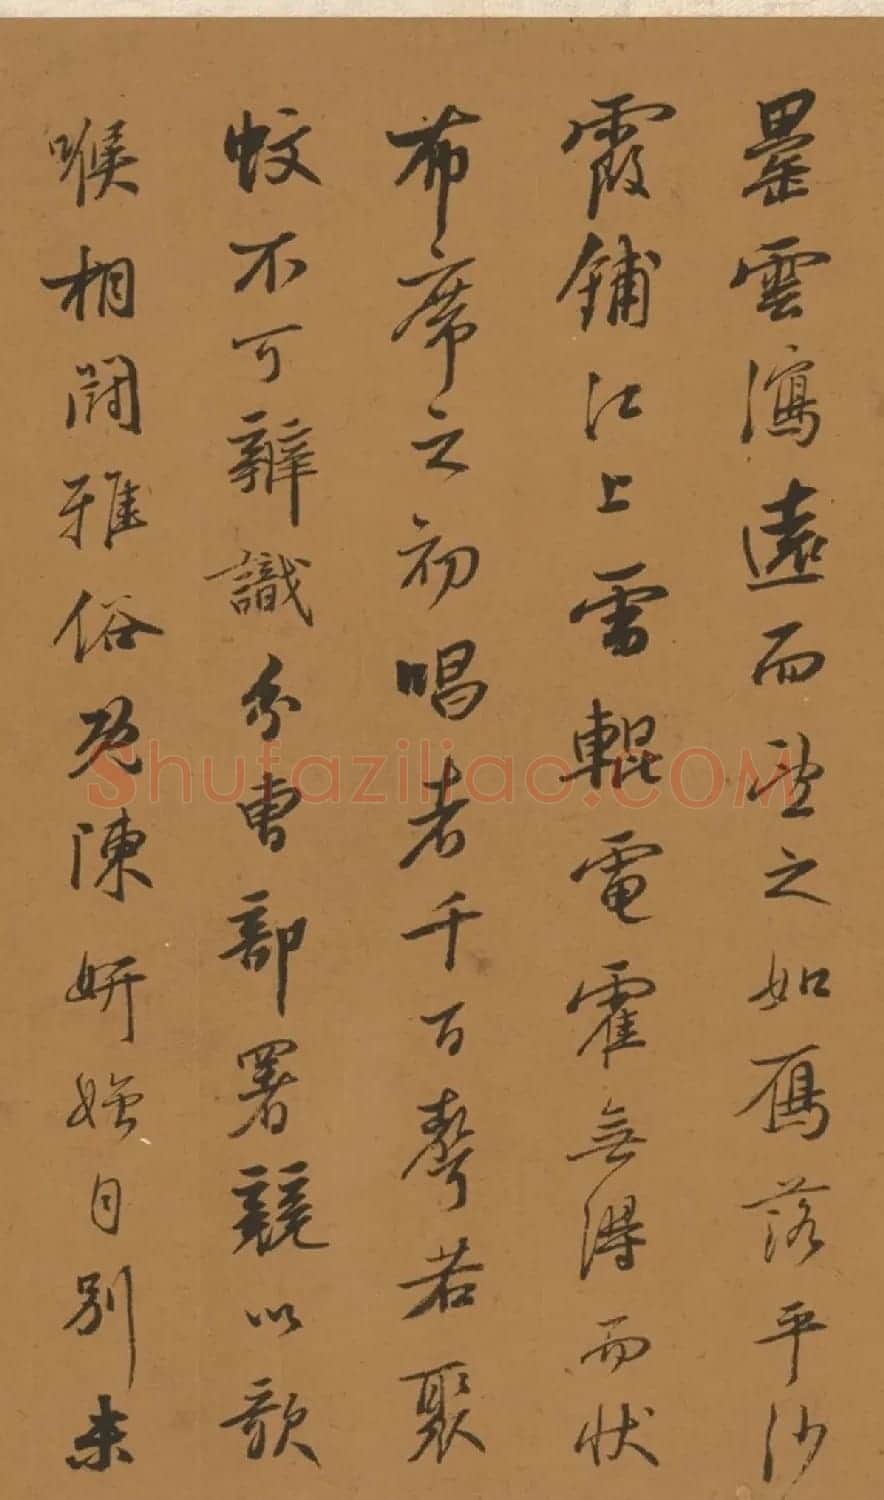 罍雲瀉遠而望之如鴈落平沙
霞鋪江上雷輥電霍無得而狀
布席之初唱者千百聲若聚
蚊不可辨識分曹部署競以歌
喉相鬪雅俗既陳妍媸自別未
Shufaziliao.COM